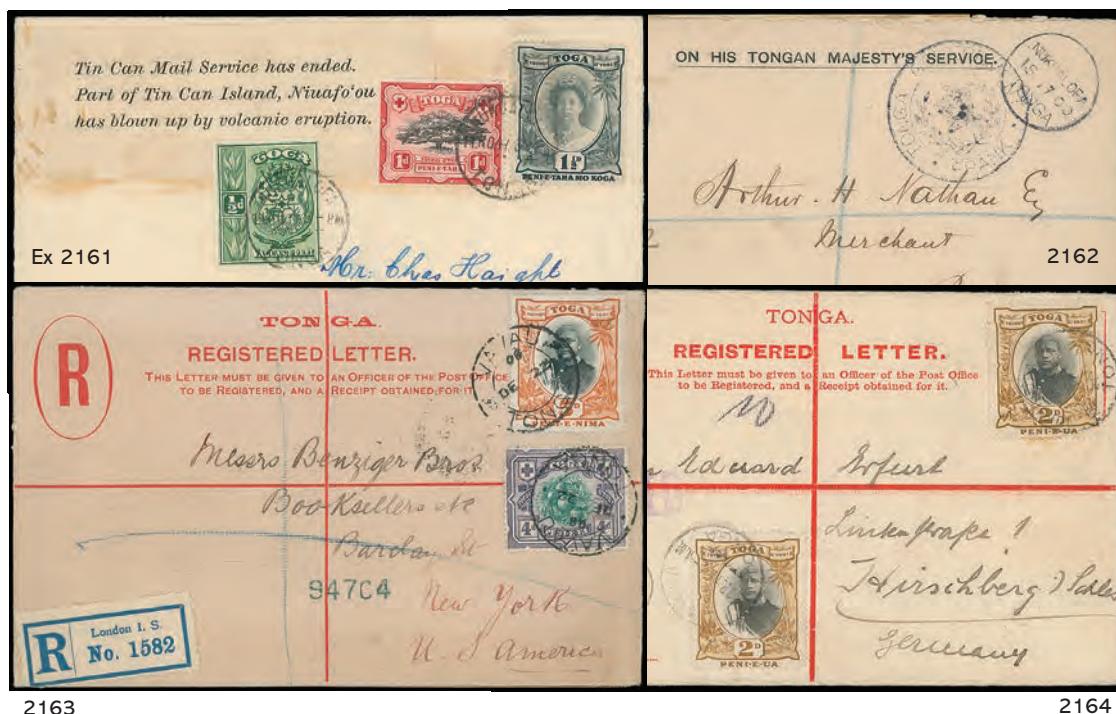 Tin Can Mail Service has ended.
Part of Tin Can Island, Niuafo'ou
has blown up by volcanic eruption.
TOGA
1d
PENI-E-TAHA
TOGA
1½d
PENI-E-TAHA MO KOGA
TOGA
½d
Mr. Chas Haight
Ex 2161
ON HIS TONGAN MAJESTY'S SERVICE.
TONGA
FRANK
TONGA
Arthur. H Nathan
Merchant
2162
TONGA.
R
REGISTERED LETTER.
THIS LETTER MUST BE GIVEN TO AN OFFICER OF THE POST OFFICE
TO BE REGISTERED, AND A RECEIPT OBTAINED FOR IT.
TONGA
PENI-E-NIMA
Messrs Benziger Bros
Booksellers
Barclay St
4d
947C4
New York
U. S America
R
London I. S.
No. 1582
2163
TONGA.
REGISTERED LETTER.
This Letter must be given to an Officer of the Post Office
to be Registered, and a Receipt obtained for it.
TOGA
2D
PENI-E-UA
Eduard Erfurt
TOGA
2D
PENI-E-UA
1
Hirschberg
Germany
2164